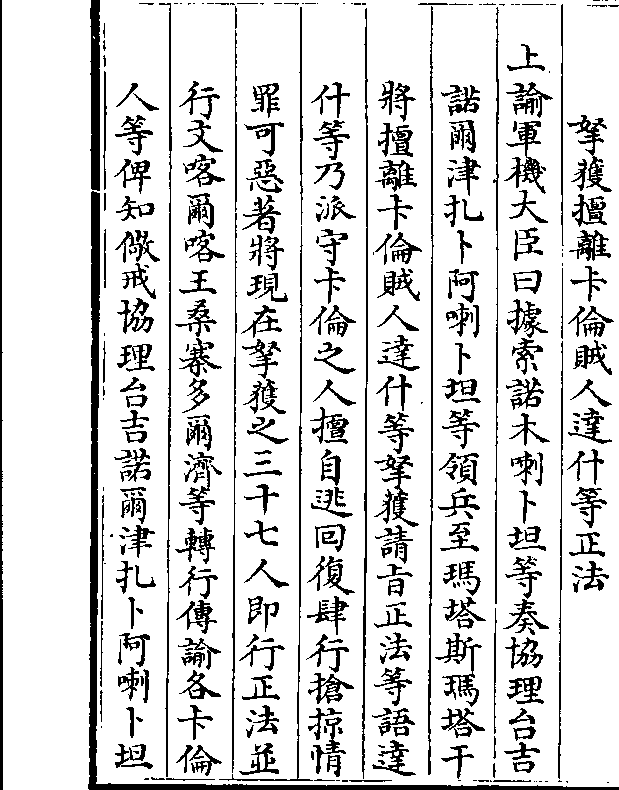 拏獲擅離卡倫賊人達什等正法
上諭軍機大臣曰據索諾木喇卜坦等奏協理台吉
諾爾津扎卜阿喇卜坦等領兵至瑪塔斯瑪塔干
將擅離卡倫賊人達什等拏獲請旨正法等語達
什等乃派守卡倫之人擅自逃回復肆行搶掠情
罪可惡著將現在拏獲之三十七人即行正法並
行文喀爾喀王桑寨多爾濟等轉行傳諭各卡倫
人等俾知儆戒協理台吉諾爾津扎卜阿喇卜坦